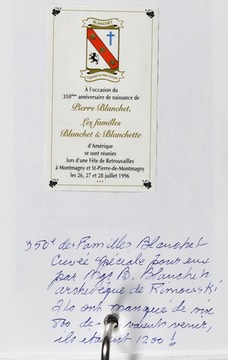 BLANCHET
À l'occasion du
350ème anniversaire de naissance de
Pierre Blanchet,
Les familles
Blanchet & Blanchette
d'Amérique
se sont réunies
lors d'une Fête de Retrouvailles
à Montmagny et St-Pierre-de-Montmagny
les 26, 27 et 28 juillet 1996
350e des Familles Blanchet
Cuvée spéciale pour eux
par Mgr B. Blanchet
archevêque de Rimouski
Ils ont manqué de vin
500 de- vaient venir,
ils étaient 1200 !